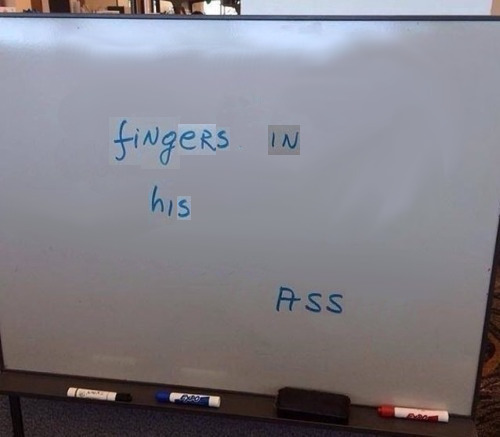 fiNgeRS IN
his
ASS
EXPO
EXPO